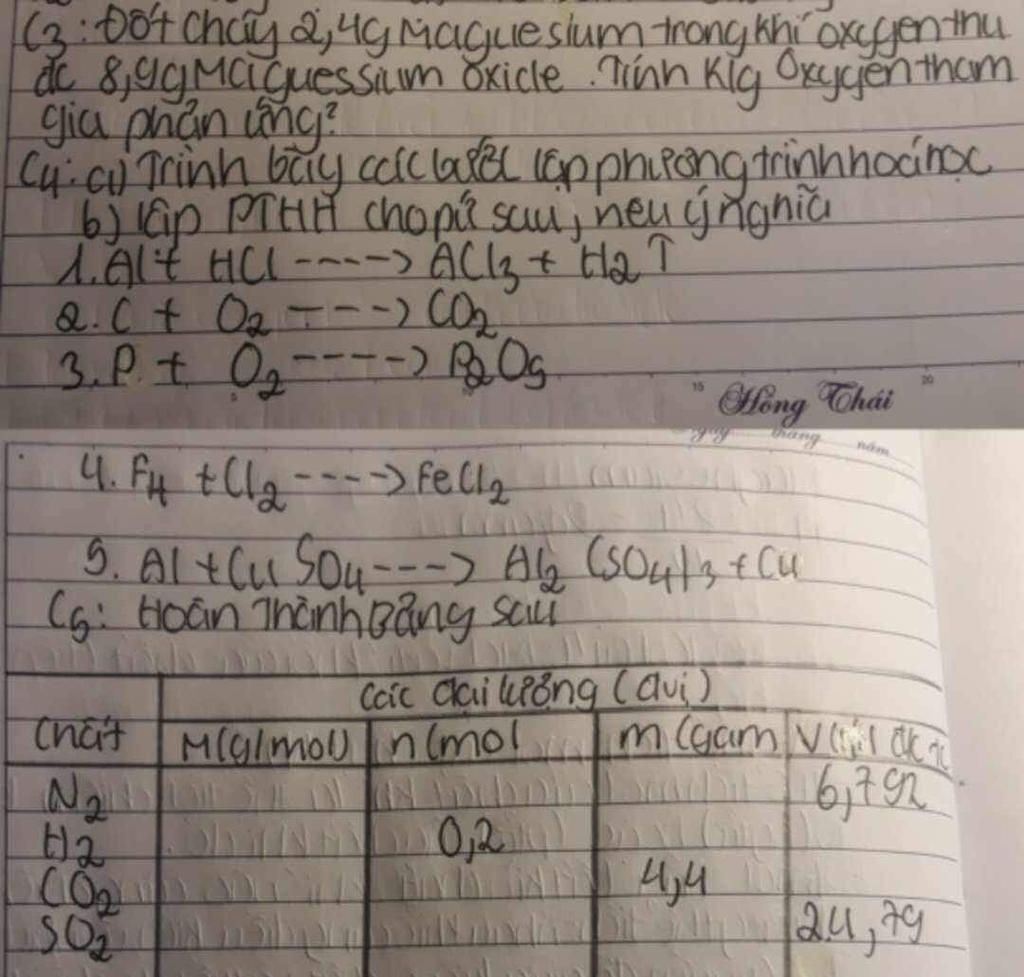 C3: Đốt cháy 2,4g Maguesium trong khí oxygen thu
đc 8,9g Maguessium oxide. Tính Klg Oxygen tham
gia phản ứng?
C4: a) Trình bày các bước lập phương trình hoá học
b) lập PTHH cho pứ sau, neu ý nghĩa
1. Al + HCl ----> ACl3 + H2↑
2. C + O2 ----> CO2
3. P + O2 ----> P2O5
15 Hồng Thái 20
ngày tháng năm
4. F4 + Cl2 ----> FeCl2
5. Al + CuSO4 ----> Al2(SO4)3 + Cu
C5: Hoàn Thành Bảng sau
Các đại lượng (đvị)
Chất M(g/mol) n(mol m(gam V(lít đktc
N2 6,792
H2 0,2
CO2 4,4
SO2 24,79